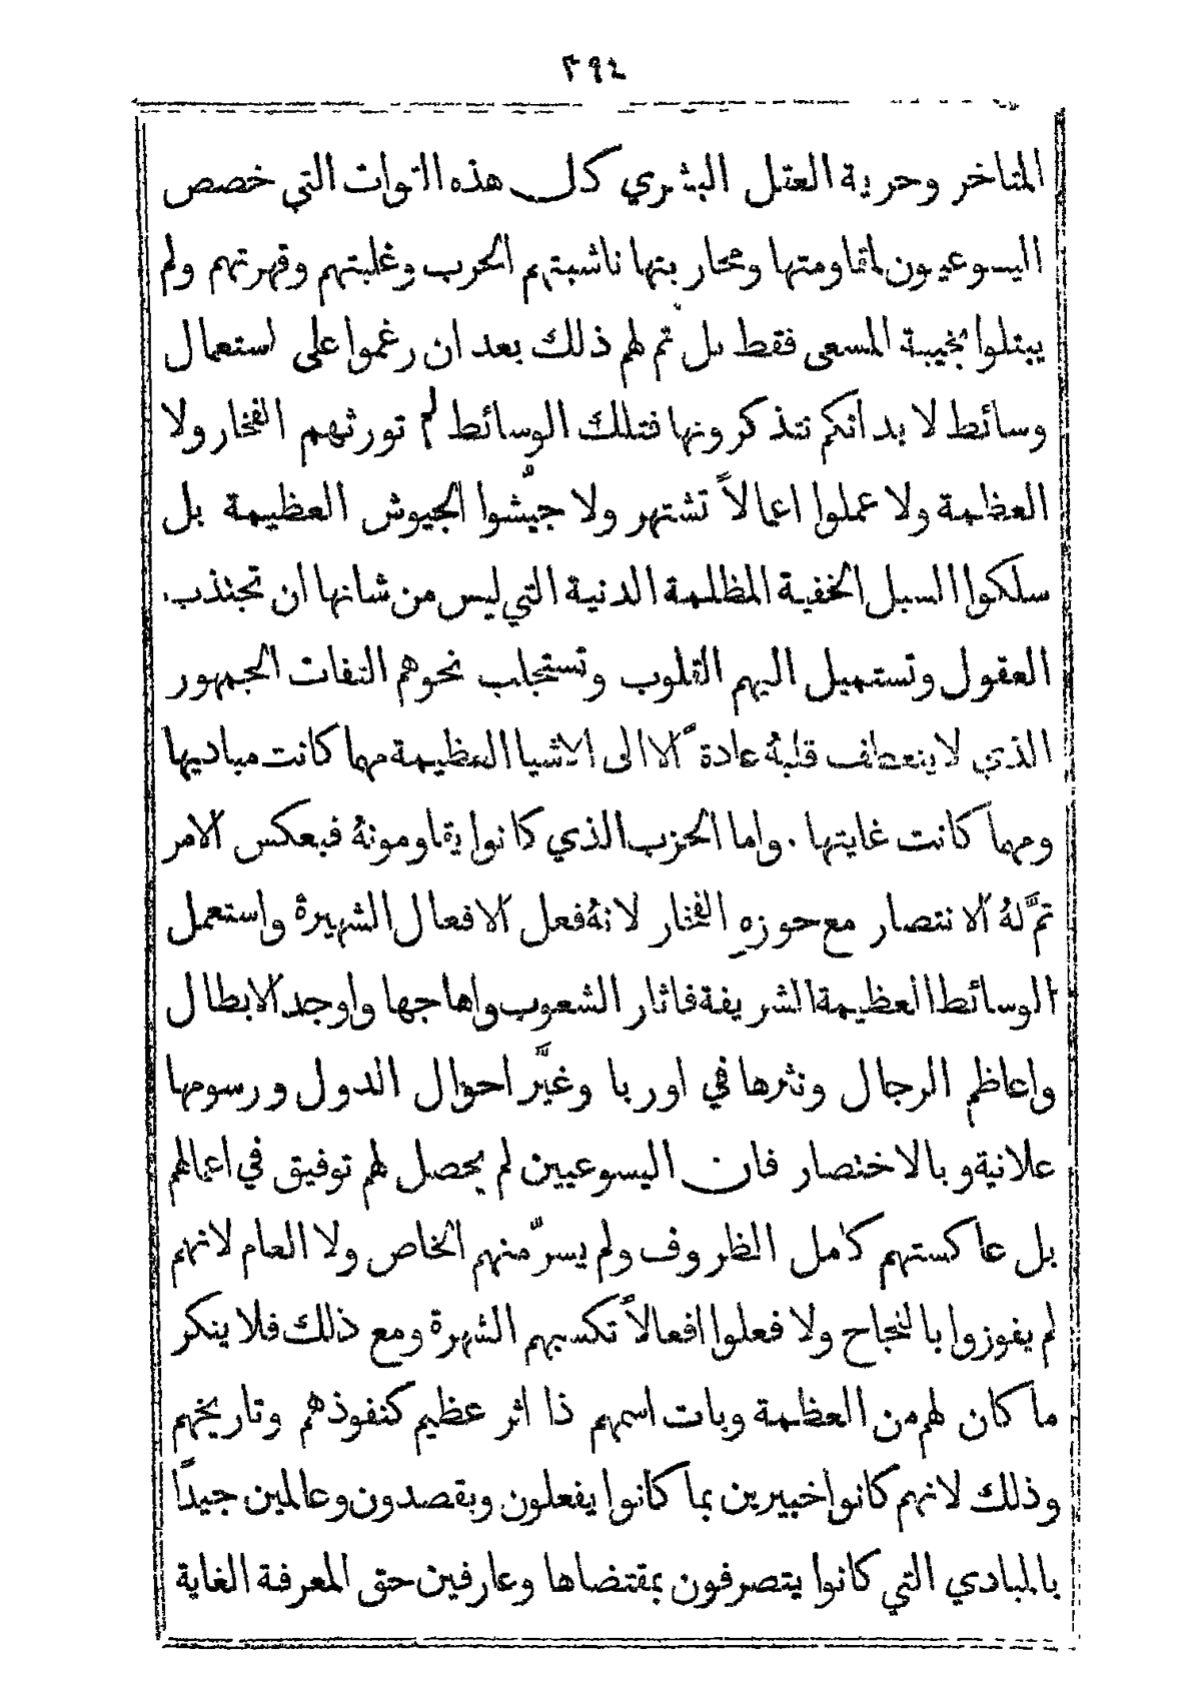 ٣٩٤
المتاخر وحرية العقل البشري كل هذه القوات التي خصص
اليسوعيون لمقاومتها ومحاربتها ناشبتهم الحرب وغلبتهم وقهرتهم ولم
يبتلوا بخيبة المسعى فقط بل تم لهم ذلك بعد ان رغموا على استعمال
وسائط لا بد انكم تتذكرونها فتلك الوسائط لم تورثهم الفخار ولا
العظمة ولا عملوا اعمالاً تشتهر ولا جيّشوا الجيوش العظيمة بل
سلكوا السبل الخفية المظلمة الدنية التي ليس من شانها ان تجتذب
العقول وتستميل اليهم القلوب وتستجلب نحوهم التفات الجمهور
الذي لا ينعطف قلبهُ عادةً الا الى الاشيا العظيمة مهما كانت مباديها
ومهما كانت غايتها . واما الحزب الذي كانوا يقاومونهُ فبعكس الامر
تمَّ لهُ الانتصار مع حوزهِ الفخار لانهُ فعل الافعال الشهيرة واستعمل
الوسائط العظيمة الشريفة فاثار الشعوب واهاجها واوجد الابطال
واعاظم الرجال ونثرها في اوربا وغيَّر احوال الدول ورسومها
علانية وبالاختصار فان اليسوعيين لم يحصل لهم توفيق في اعمالهم
بل عاكستهم كامل الظروف ولم يسرّ منهم الخاص ولا العام لانهم
لم يفوزوا بالنجاح ولا فعلوا افعالاً تكسبهم الشهرة ومع ذلك فلا ينكر
ما كان لهم من العظمة وبات اسمهم ذا اثر عظيم كنفوذهم وتاريخهم
وذلك لانهم كانوا خبيرين بما كانوا يفعلون ويقصدون وعالمين جيداً
بالمبادي التي كانوا يتصرفون بمقتضاها وعارفين حق المعرفة الغاية